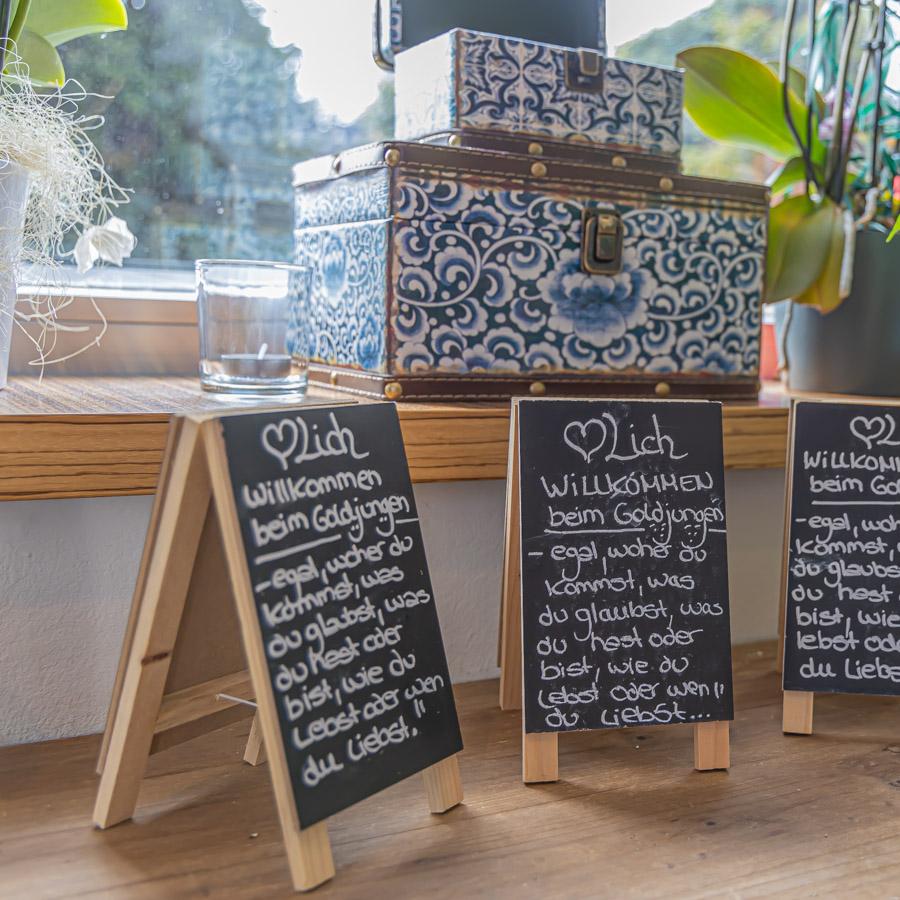 ♡Lich
Willkommen
beim Goldjungen
-egal, woher du
kommst, was
du glabst, was
du hast oder
bist, wie du
Lebst oder wen
du Liebst."
♡Lich
WiLLKOMMEN
beim Goldjungen
- egal, woher du
kommst, was
du glaubst, was
du hast oder
bist, wie du
Lebst oder wen
du Liebst...
♡L
WiLLKOM
beim Gol
-egal, woh
kommst,
du glaubs
du hast
bist, wie
lebst od
du Liebs